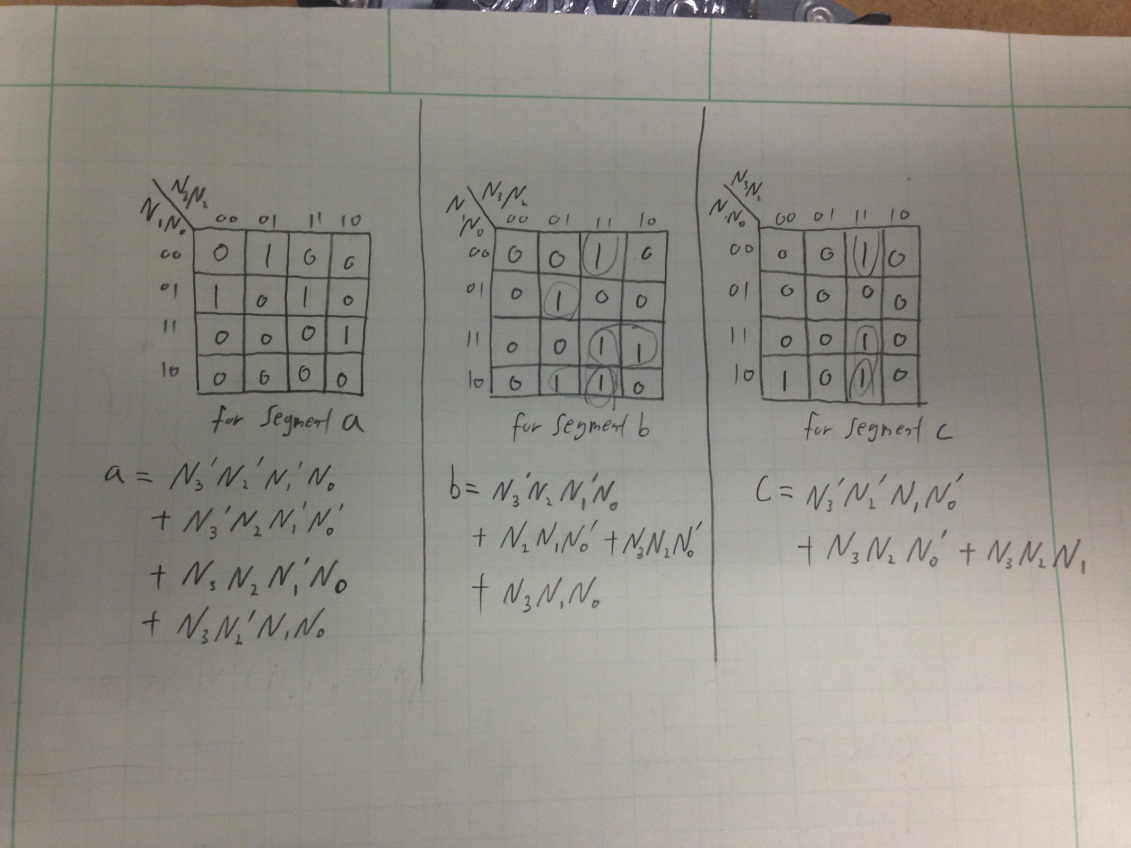 N₃N₂
N₁N₀
00 01 11 10
00 0 1 0 0
01 1 0 1 0
11 0 0 0 1
10 0 0 0 0
for segment a
a = N₃'N₂'N₁'N₀
+ N₃'N₂N₁'N₀'
+ N₃N₂N₁'N₀
+ N₃N₂'N₁N₀
N₃N₂
N₁N₀
00 01 11 10
00 0 0 1 0
01 0 1 0 0
11 0 0 1 1
10 0 1 1 0
for segment b
b = N₃'N₂N₁'N₀
+ N₂N₁N₀' + N₃N₂N₀'
+ N₃N₁N₀
N₃N₂
N₁N₀
00 01 11 10
00 0 0 1 0
01 0 0 0 0
11 0 0 1 0
10 1 0 1 0
for segment c
C = N₃'N₂'N₁N₀'
+ N₃N₂N₀' + N₃N₂N₁